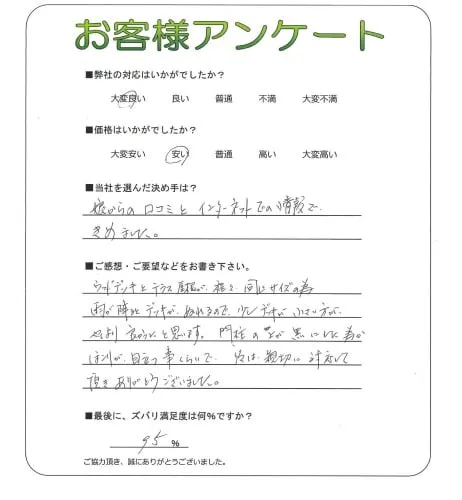 お客様アンケート
■弊社の対応はいかがでしたか？
大変良い 良い 普通 不満 大変不満
■価格はいかがでしたか？
大変安い 安い 普通 高い 大変高い
■当社を選んだ決め手は？
娘からの 口コミと インターネットでの情報で
きめました。
■ご感想・ご要望などをお書き下さい。
ウッドデッキと テラス屋根が、 同じサイズの為
雨が降ると デッキが、ぬれるので、少しデッキが 小さい方が、
やはり 良かったと思います。 門柱の 黒にした為か
ほこりが、目立つ事くらいで、 親切に 対応して
頂きありがとうございました。
■最後に、ズバリ満足度は何％ですか？
95 ％
ご協力頂き、誠にありがとうございました。